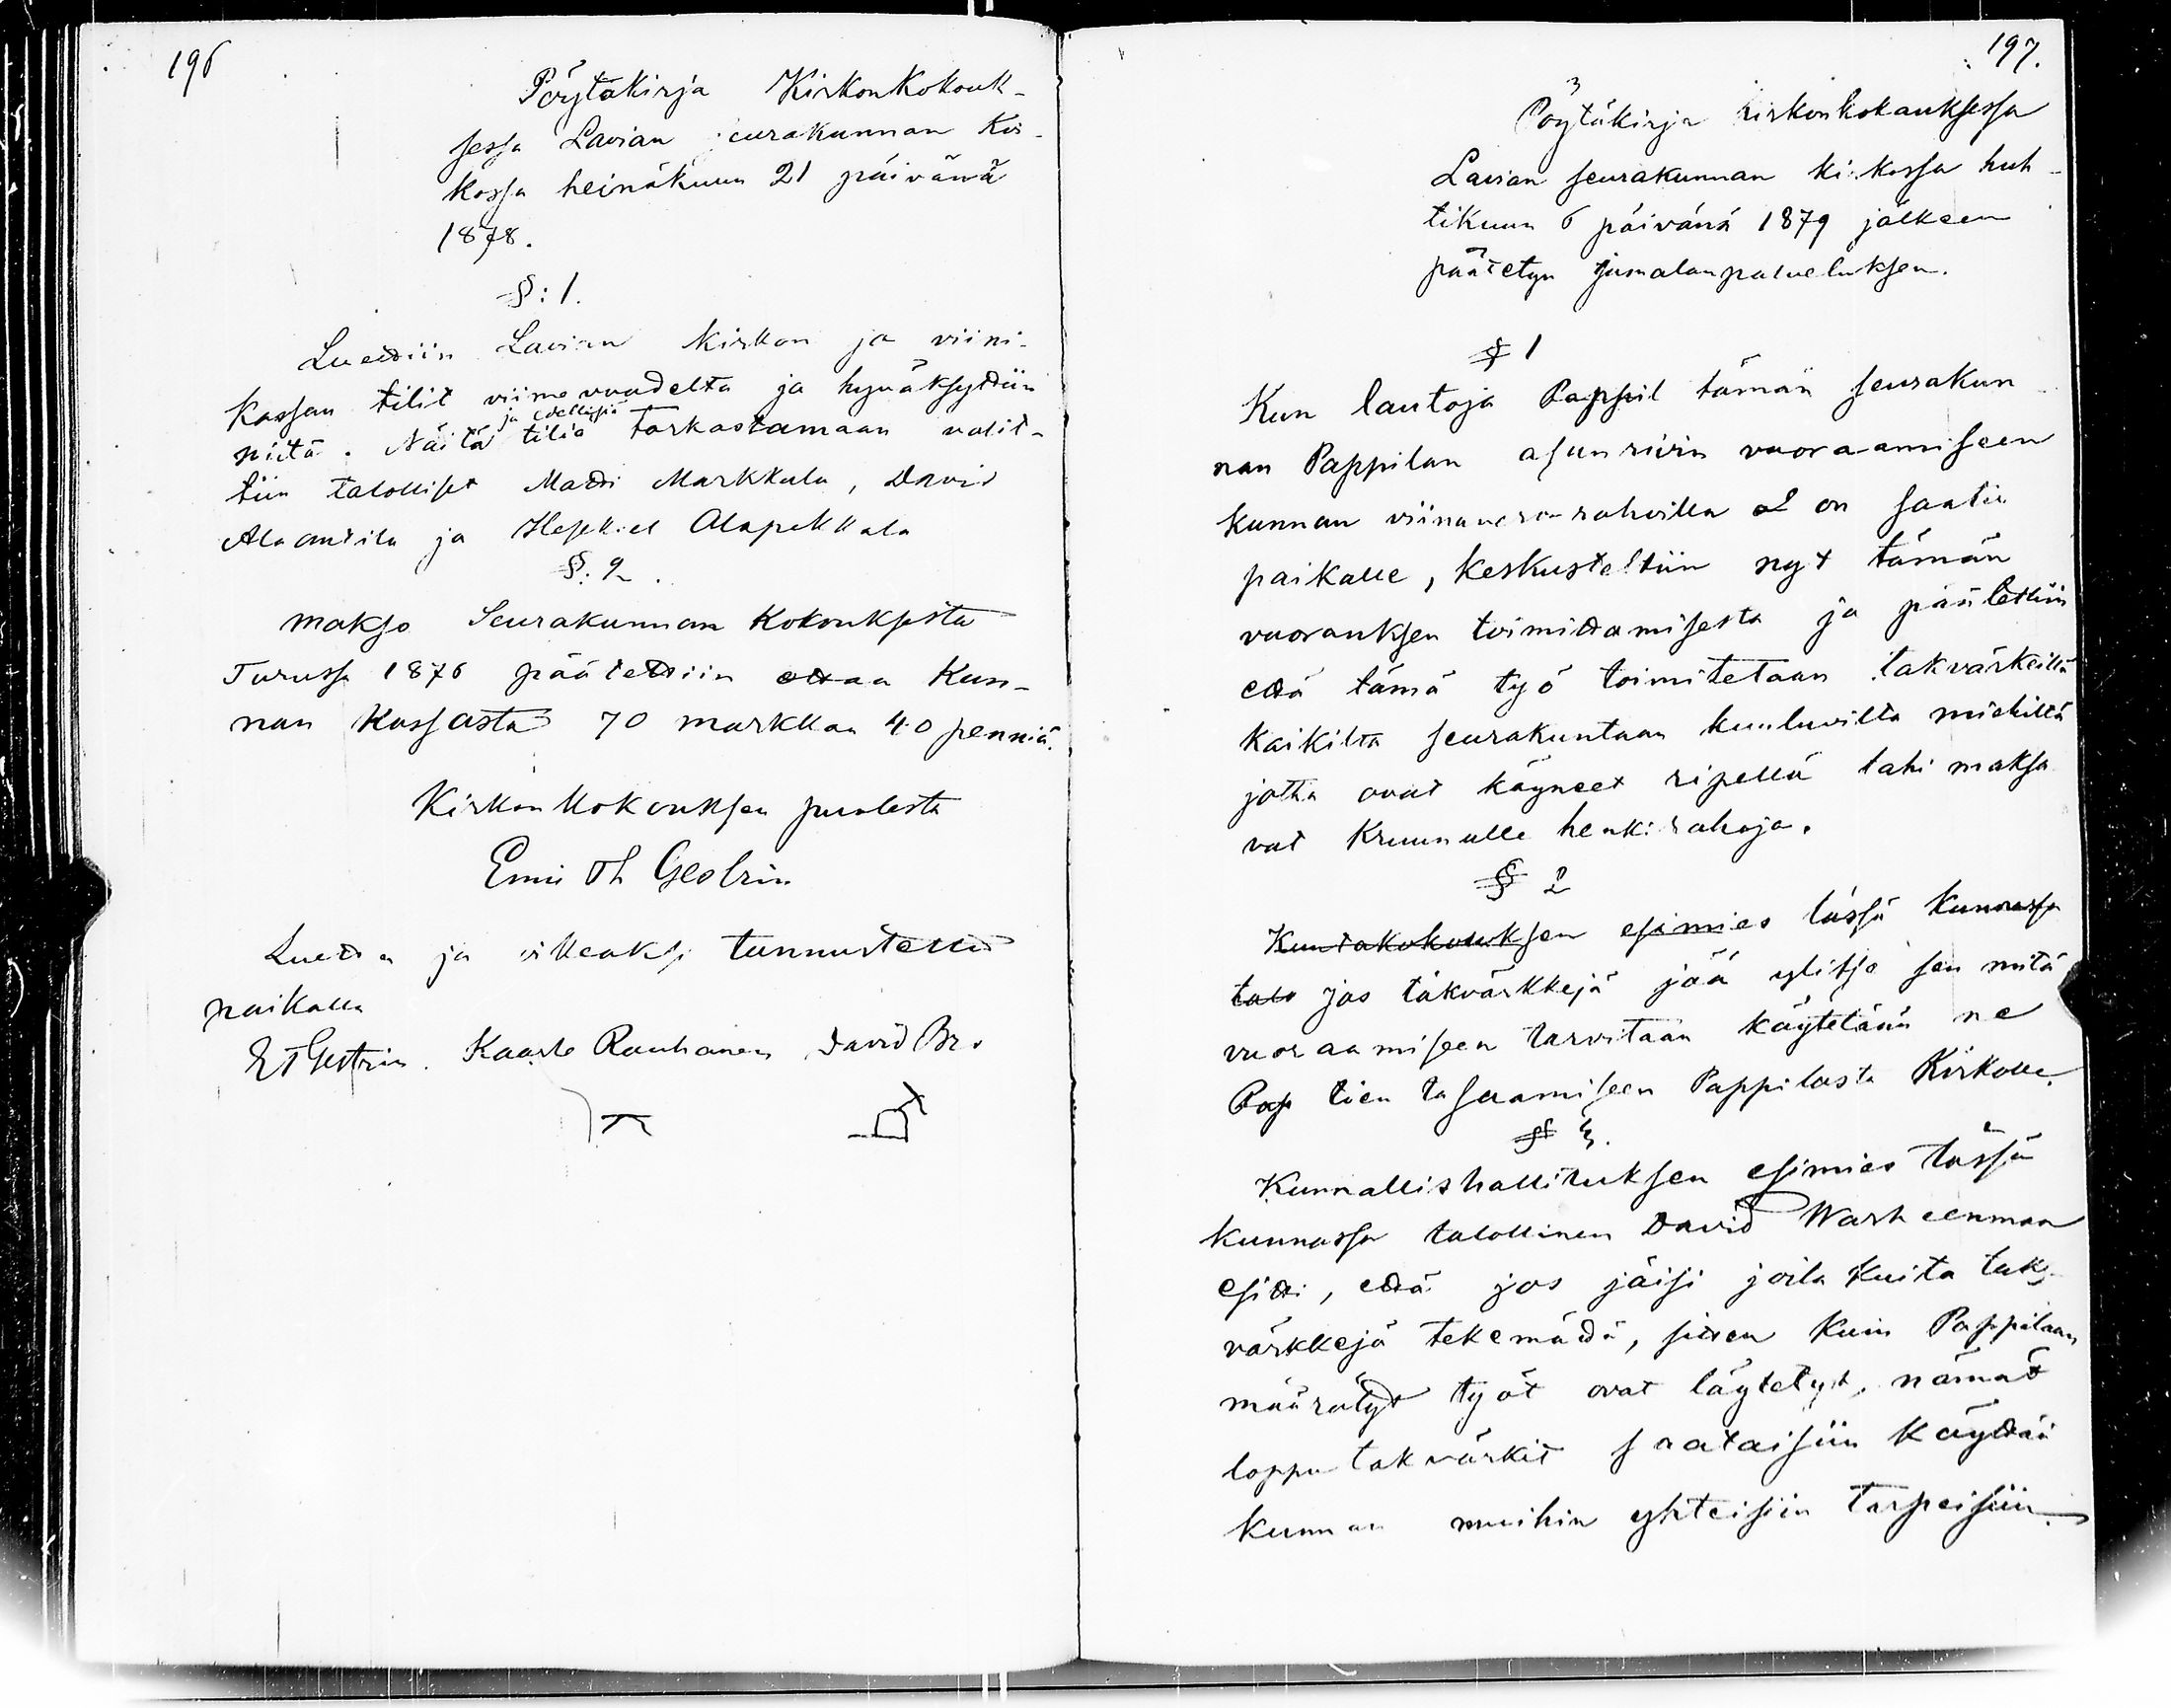 196
Pöytäkirja Kirkonkokouk-
sessa Lavian seurakunnan Kir-
kossa heinäkuun 21 päivänä
1878.
§: 1.
Luettiin Lavian Kirkon ja viini-
Kassan tilit viime vuodelta ja hyväksyttiin
ja edellisiä
niitä. Näitä tiliä tarkastamaan valit-
tiin talolliset Matti Markkula, David
Alaanttila ja Hesekiel Alapekkala
§: 2.
makso Seurakunnan Kokouksesta
Turussa 1876 päätettiin ottaa Kun-
nan Kassasta 70 markkaa 40 penniä.
Kirkon Kokouksen puolesta
Emil Th Gestrin
Luettu ja oikeaksi tunnustettu
paikalla
E T Gestrin. Kaarle Rauhanen David Br.
197.
Pöytäkirja kirkonkokouksessa
Lavian seurakunnan kirkossa huh-
tikuun 6 päivänä 1879 jälkeen
päätetyn jumalanpalveluksen.
§ 1
Kun lautoja Pappil tämän seurakun
nan Pappilan asunrivin vuoraamiseen
kunnan viinaverorahoilla on saatu
paikalle, keskusteltiin nyt tämän
vuorauksen toimittamisesta ja päätettiin
että tämä työ toimitetaan takvärkeillä
kaikilta seurakuntaan kuuluvilta miehiltä
jotka ovat käyneet ripellä tahi maksa
vat Kruunulle henkirahoja.
§ 2
Kuntakokouksen esimies tässä kunnassa
talo jos takvärkkejä jää ylitse sen mitä
vuoraamiseen tarvitaan käytetään ne
Pap tien tasaamiseen Pappilasta Kirkolle.
§ 3.
Kunnallishallituksen esimies tässä
kunnassa talollinen David Warheenmaa
esitti, että jos jäisi joita kuita tak-
värkkejä tekemättä, sitten kuin Pappilaan
määrätyt työt ovat täytetyt, nämät
loppu takvärkit saataisiin käyttää
kunnan muihin yhteisiin tarpeisiin.